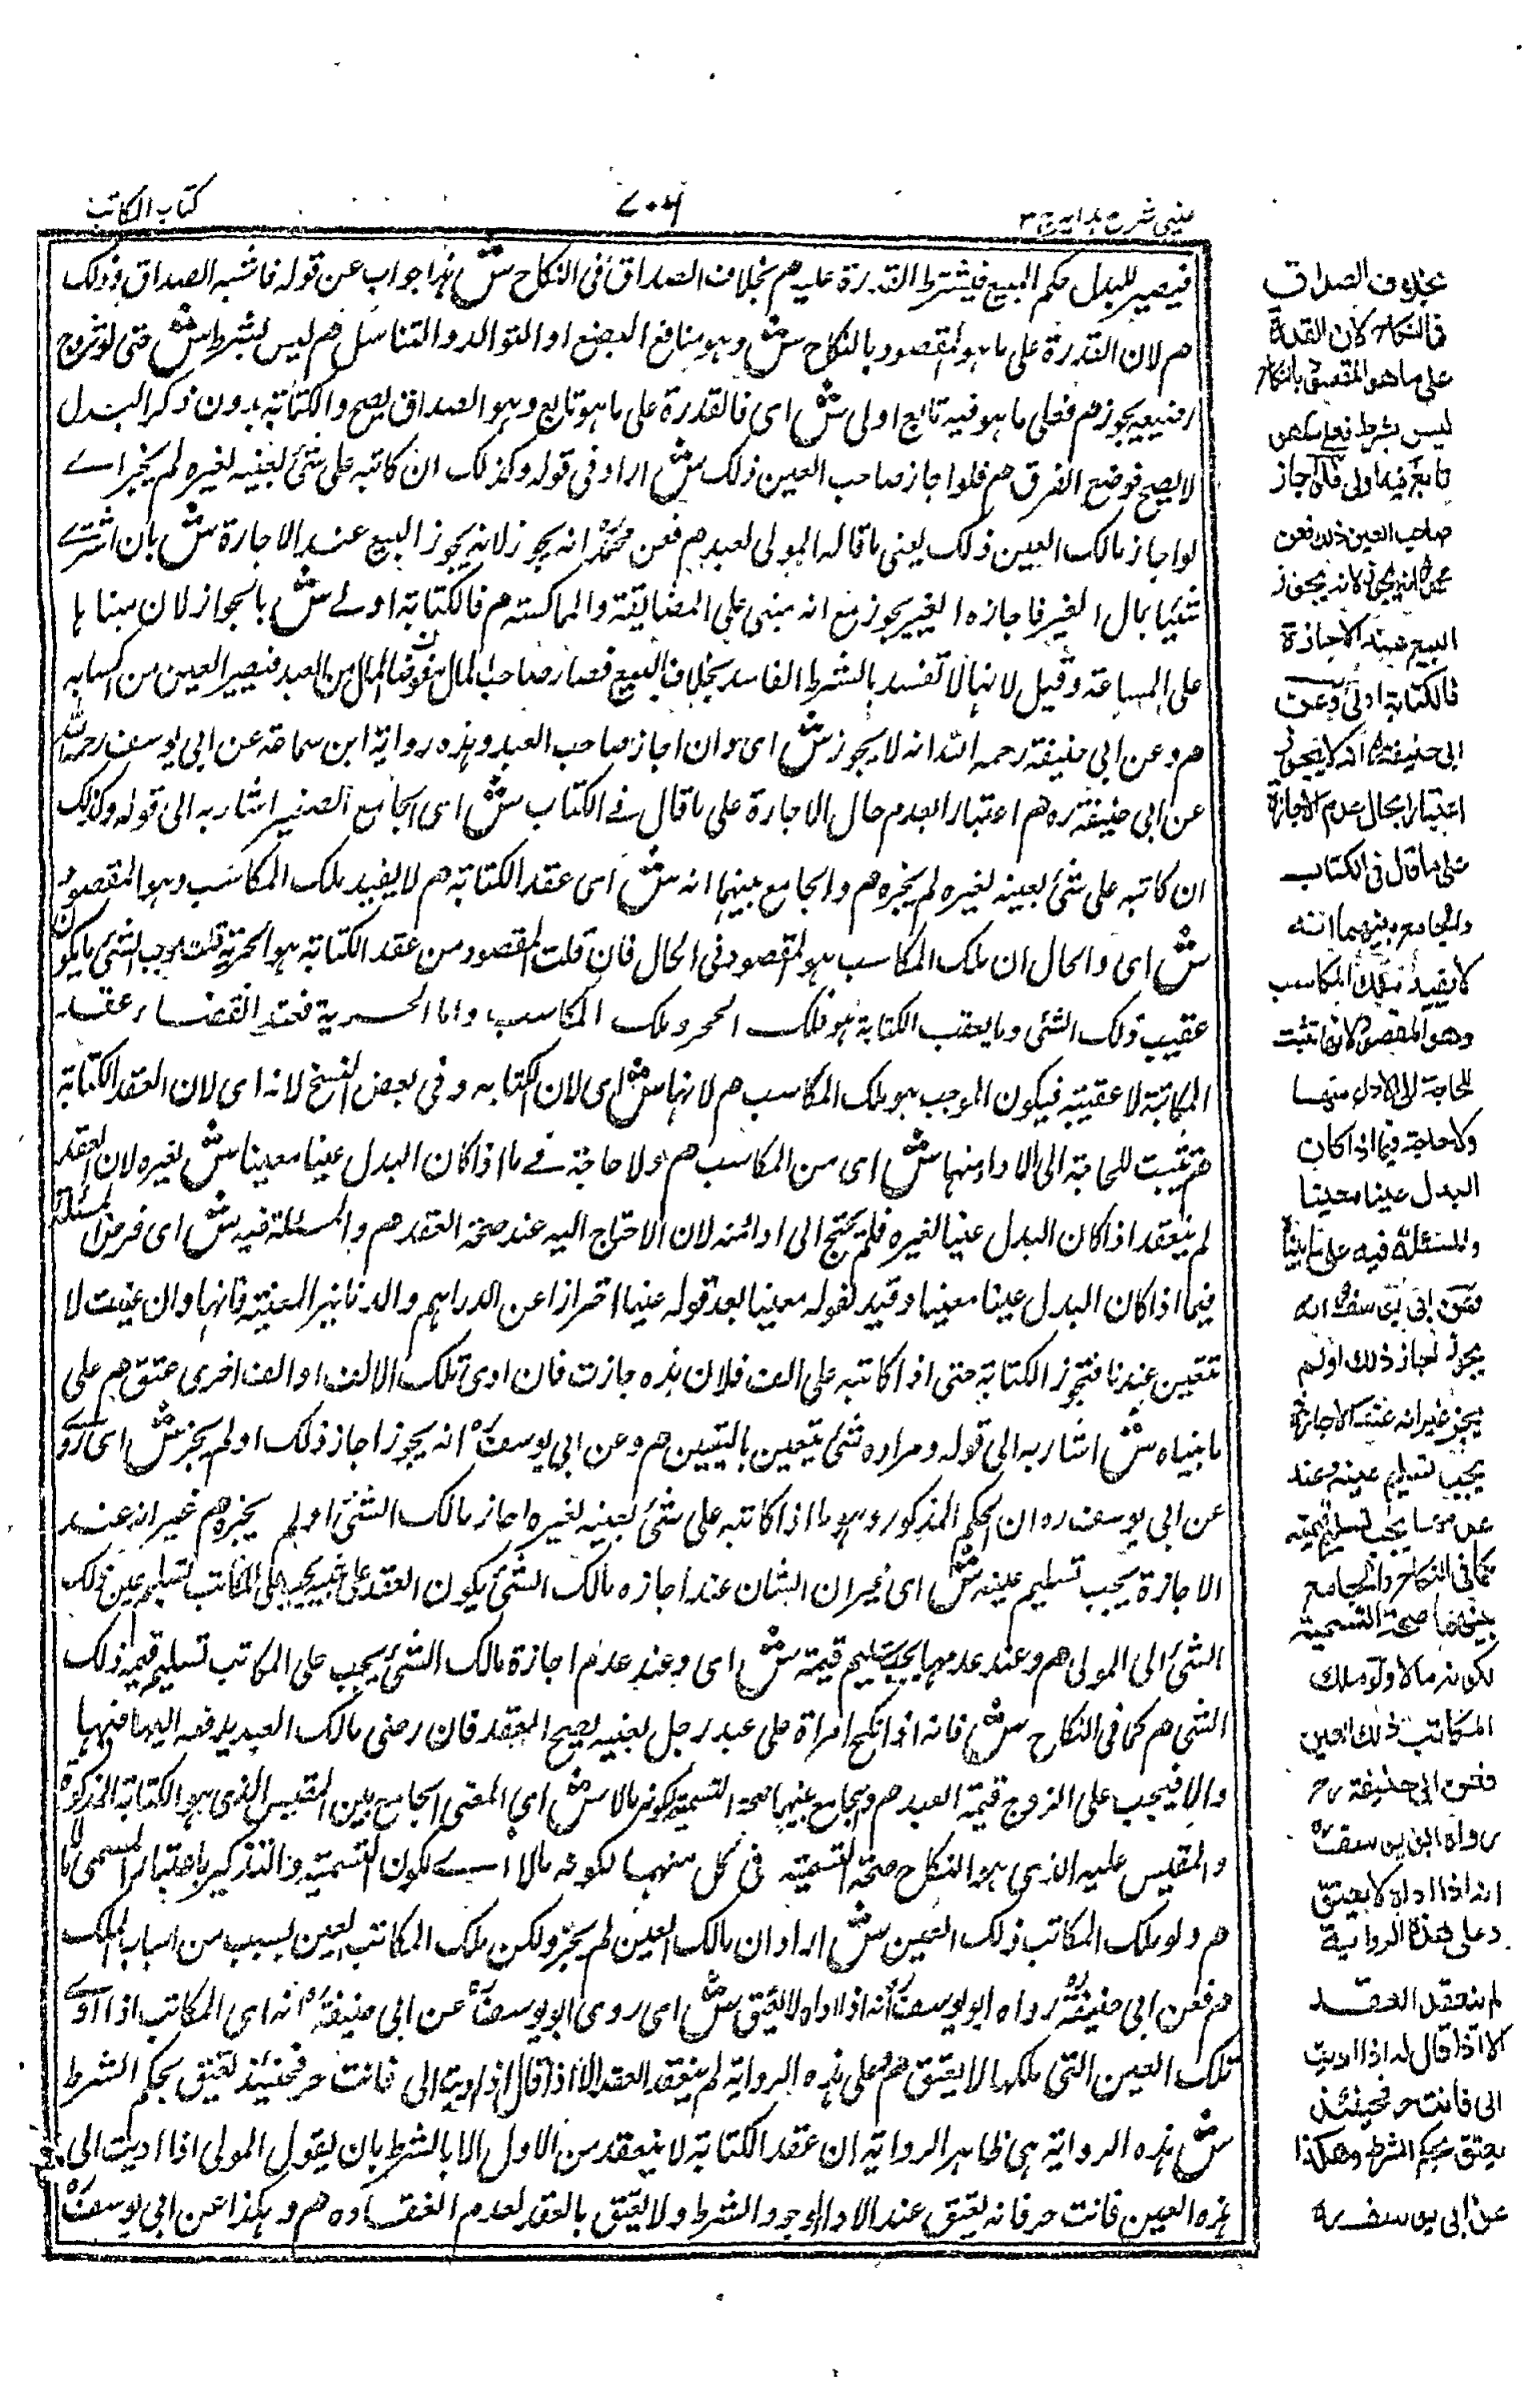 عينى شرح هدايه ج ٣
٧٠٦
كتاب المكاتب
فيصير للبدل حكم المبيع فيشترط القدرة عليه هم بخلاف الصداق فى النكاح ش هذا جواب عن قوله فاشبه الصداق وذلك
هم لان القدرة على ما هو المقصود بالنكاح ش وهو منافع البضع او التوالد والتناسل هم ليس بشرط ش حتى لو تزوج
رضيعة يجوز هم فعلى ما هو فيه تابع اولى ش اى فالقدرة على ما هو تابع وهو الصداق يصح والكتابة بدون ذكر البدل
لا يصح فوضح الفرق هم فلو اجاز صاحب العين ذلك ش اراد فى قوله وكذلك ان كاتبه على شئ بعينه لغيره لم يجز اے
لو اجاز مالك العين ذلك يعنى ما قاله المولى لعبده هم فعن محمدؒ انه يجوز لانه يجوز البيع عند الاجازة ش بان اشترے
شيئا بمال الغير فاجازه الغير يجوز مع انه مبنى على المضايقة والمماكسة هم فالكتابة اولے ش بالجواز لان مبناها
على المساهمة وقيل لانها لا تفسد بالشرط الفاسد بخلاف البيع فصار صاحب المال مقرضا المال من العبد فيصير العين من اكسابه
هم وعن ابى حنيفة رحمه الله انه لا يجوز ش اى وان اجاز صاحب العبد وهذه رواية ابن سماعة عن ابى يوسف رحمه الله
عن ابى حنيفة ره هم اعتبارا لعدم حال الاجازة على ما قال فے الكتاب ش اى الجامع الصغير اشار به الى قوله وكذلك
ان كاتبه على شئ بعينه لغيره لم يجزه هم والجامع بينهما انه ش اى عقد الكتابة هم لا يفيد ملك المكاسب وهو المقصود
ش اى والحال ان ملك المكاسب هو المقصود فى الحال فان قلت المقصود من عقد الكتابة هو الحرية قلت موجب الشئ ما يكون
عقيب ذلك الشئ وما يعقب الكتابة هو فلك الحجر وملك المكاسب واما الحرية فعند انقضاء عقد
المكاتبة لا عقيبه فيكون الموجب هو ملك المكاسب هم لانها ش اى لان الكتابه وفى بعض النسخ لانه اى لان العقد الكتابة
هم تثبت للحاجة الى الاداء منها ش اى من المكاسب هم ولا حاجة فے ما اذا كان البدل عينا معينا ش لغيره لان العقد
لم ينعقد اذا كان البدل عينا لغيره فلم يحتج الى ادائه لان الاحتاج اليه عند صحة العقد هم والمسئلة فيه ش اى فرض المسئلة
فيما اذا كان البدل عينا معينا وقيد لقوله معينا بعد قوله عينا احترازا عن الدراهم والدنانير المعينة فانها وان عينت لا
تتعين عندنا فتجوز الكتابة حتى اذا كاتبه على الف فلان هذه جازت فان ادى تلك الالف او الف اخرى عتق هم على
ما بيناه ش اشار به الى قوله ومراده شئ يتعين بالتعيين هم وعن ابى يوسفؒ انه يجوز اجاز ذلك او لم يجز ش اى روے
عن ابى يوسف ره ان الحكم المذكور وهو ما اذا كاتبه على شئ بعينه لغيره اجاز مالك الشئ او لم يجزه هم غير انه عند
الاجازة يجب تسليم عينه ش اى غير ان الشان عند اجازه مالك الشئ يكون العقد على عينه يجب على المكاتب تسليم عين ذلك
الشئ الى المولى هم وعند عدمها يجب تسليم قيمته ش اى وعند عدم اجازة مالك الشئ يجب على المكاتب تسليم قيمة ذلك
الشئ هم كما فى النكاح ش فانه اذا نكح امراة على عبد رجل بعينه يصح العقد فان رضى مالك العبد يدفعه اليها منها
والا فيجب على الزوج قيمة العبد هم والجامع بينهما صحة التسمية لكونه مالا ش اى المعنى الجامع بين المقيس الذى هو الكتابة المذكورة
والمقيس عليه الذى هو النكاح صحة التسمية فى كل منهما لكونه مالا اے لكون التسمية والتذكير باعتبار المسمى مالا
هم ولو ملك المكاتب ذلك العين ش اراد ان مالك العين لم يجز ولكن ملك المكاتب العين بسبب من اسباب الملك
هم فعن ابى حنيفةؒ رواه ابو يوسفؒ انه اذا اداه لا يعتق ش اى روى ابو يوسفؒ عن ابى حنيفةؒ انه اى المكاتب اذا ادے
تلك العين التى ملكها لا يعتق هم وعلى هذه الرواية لم ينعقد العقد الا اذا قال اذا اديت الى فانت حر فحينئذ يعتق بحكم الشرط
ش هذه الرواية هى ظاهر الرواية ان عقد الكتابة لا ينعقد من الاول الا بالشرط بان يقول المولى اذا اديت الى
هذه العين فانت حر فانه يعتق عند الاداء لوجود الشرط ولا يعتق بالعقد لعدم انعقاده هم وهكذا عن ابى يوسفؒ
بخلاف الصداق
فى النكاح لان القدرة
على ما هو المقصود بالنكاح
ليس بشرط فعلى ما هو
تابع فيه اولى فلو اجاز
صاحب العين ذلك فعن
محمدؒ انه يجوز لانه يجوز
البيع عند الاجازة
فالكتابة اولى وعن
ابى حنيفةؒ انه لا يجوز
اعتبارا بحال عدم الاجازة
على ما قال فى الكتاب
والجامع بينهما انه
لا يفيد ملك المكاسب
وهو المقصود لانها تثبت
للحاجة الى الاداء منها
ولا حاجة فيما اذا كان
البدل عينا معينا
والمسئلة فيه على ما بينا
وعن ابى يوسفؒ انه
يجوز اجاز ذلك او لم
يجز غير انه عند الاجازة
يجب تسليم عينه وعند
عدمها يجب تسليم قيمته
كما فى النكاح والجامع
بينهما صحة التسمية
لكونه مالا ولو ملك
المكاتب ذلك العين
فعن ابى حنيفة رح
رواه ابو يوسفؒ
انه اذا اداه لا يعتق
وعلى هذه الرواية
لم ينعقد العقد
الا اذا قال له اذا اديت
الى فانت حر فحينئذ
يعتق بحكم الشرط وهكذا
عن ابى يوسف ره